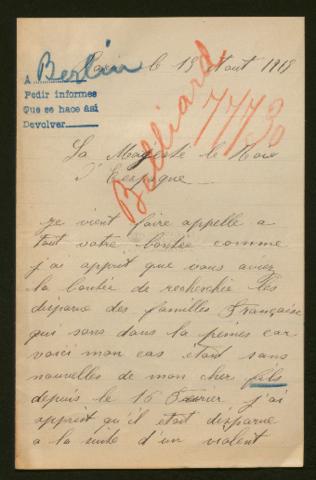 Paris le 19 Aout 1915
A Berlin
Pedir informes
Que se hace asi
Devolver
Billiard
7730
Sa Majesté le Roi
d'Espagne
je vient faire appelle a
tout votre bontée comme
j'ai apprit que vous aviez
la bontée de recherchée les
disparue des familles Française
qui sons dans la peines car
voici mon cas étant sans
nouvelles de mon cher fils
depuis le 16 Fevrier j'ai
apprit qu'il etait disparue
a la suite d'un violent